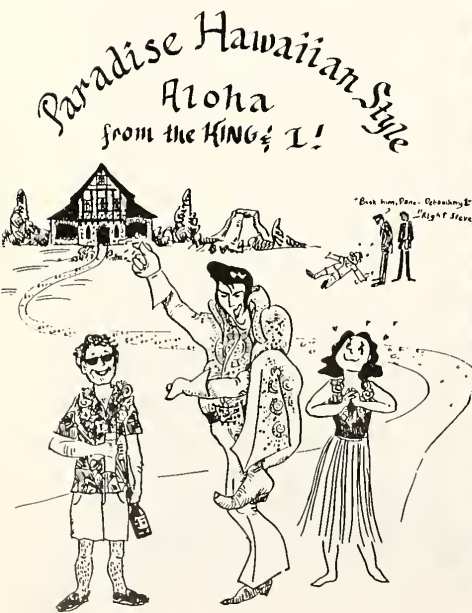 Paradise Hawaiian Style
Aloha
from the KING & I!
"Book him, Dano.
"Right Steve